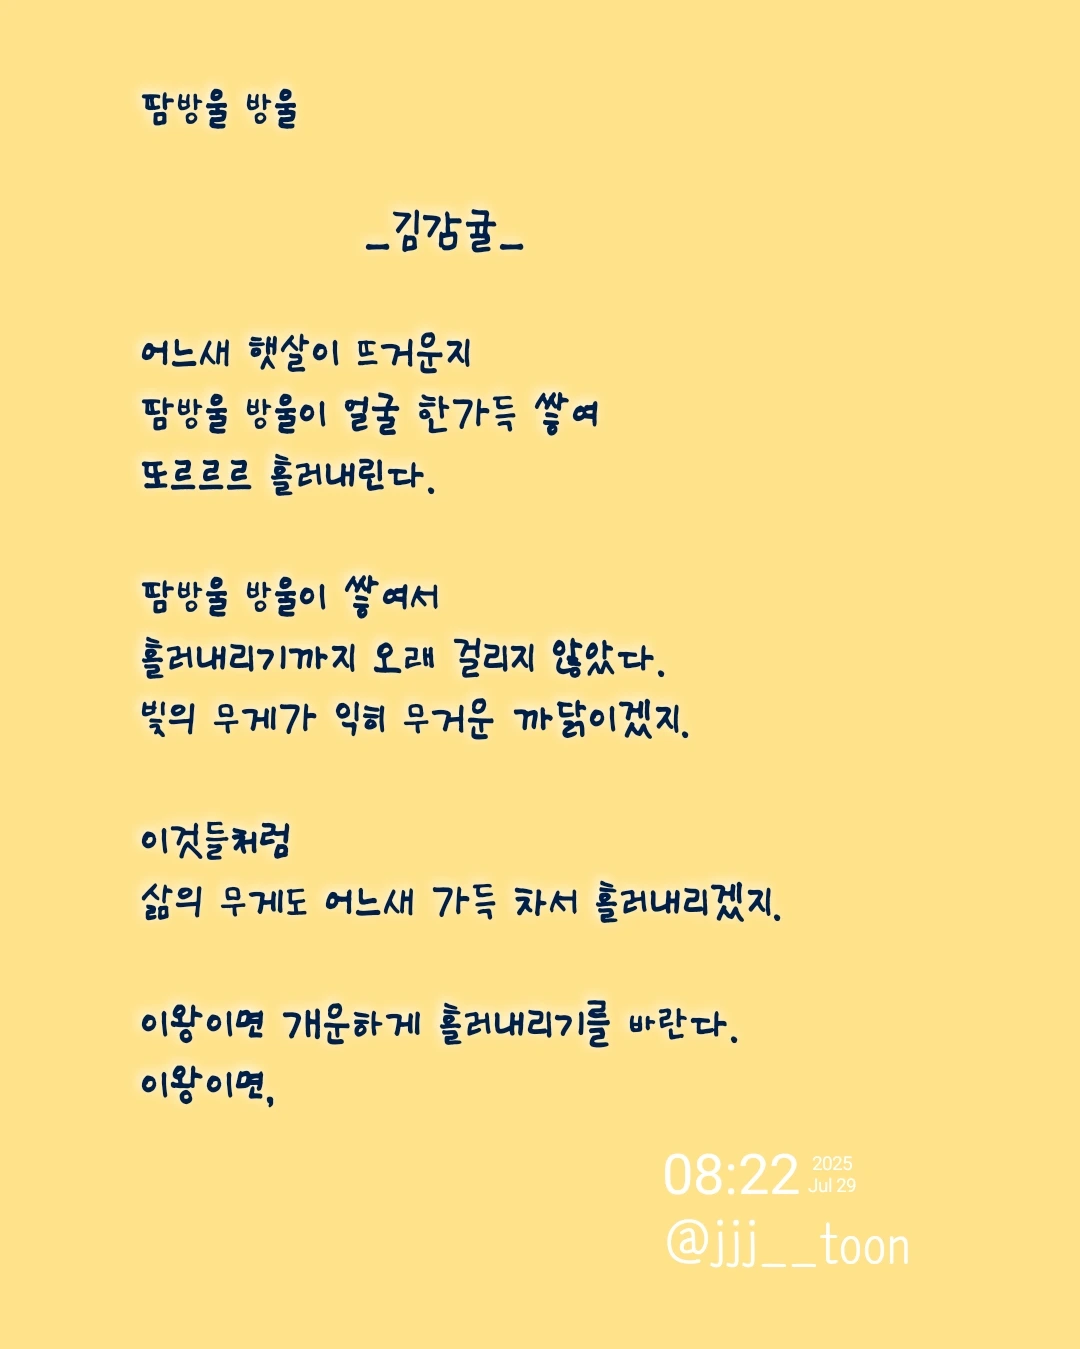 땀방울 방울
_김감귤_
어느새 햇살이 뜨거운지
땀방울 방울이 얼굴 한가득 쌓여
또르르르 흘러내린다.
땀방울 방울이 쌓여서
흘러내리기까지 오래 걸리지 않았다.
빛의 무게가 익히 무거운 까닭이겠지.
이것들처럼
삶의 무게도 어느새 가득 차서 흘러내리겠지.
이왕이면 개운하게 흘러내리기를 바란다.
이왕이면,
08:22 2025 Jul 29
@jjj__toon